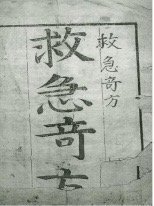 救急奇方
救急奇方